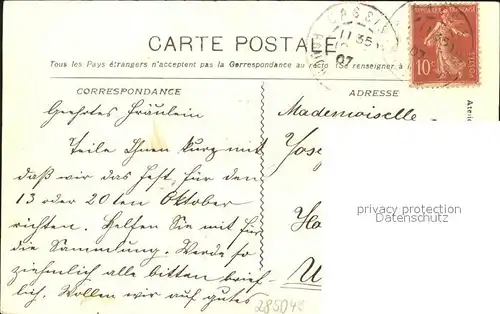 CARTE POSTALE
Tous les Pays étrangers n'acceptent pas la Correspondance au recto (Se renseigner à
CORRESPONDANCE
Geehrtes Fräulein
Teile Ihnen kurz mit
daß wir das Fest, für den
13 oder 20ten Oktober
richten. Helfen Sie mit für
die Sammlung. Werde so
ziehmlich alle bitten brief-
lich. Wollen wir auf gutes
ADRESSE
Mademoiselle
CASSIS
11 35
07
10
POSTES
privacy protection
Datenschutz